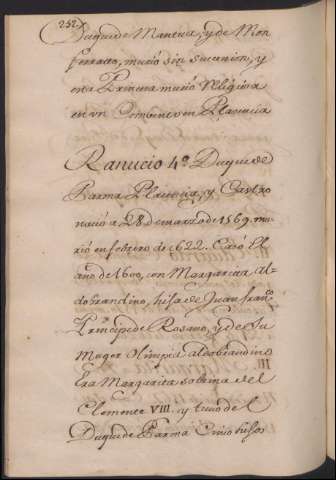 252
Duque de Mantua, y de Mon
ferrato, murió sin sucesion, y
esta Princesa murió Religiosa
en vn Combento en Plasencia
Ranucio 4º Duque de
Parma Plasencia, y Castro
nació a 28 de marzo de 1569. mu
rió en febrero de 1622. Casó El
año de 1600, con Margarita Al-
dobrandino, hija de Juan franco
Principe de Rosano, y de su
Muger Olimpia aldobrandino
Era Margarita sobrina del
Clemente VIII. y tuvo del
Duque de Parma Cinco hijos